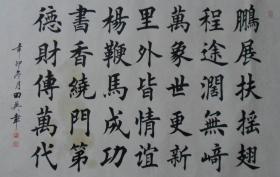 鵬展扶摇翅
程途濶無﨑
萬象世更新
里外皆情誼
楊鞭馬成功
書香繞門第
德財傳萬代
辛卯春月田英章